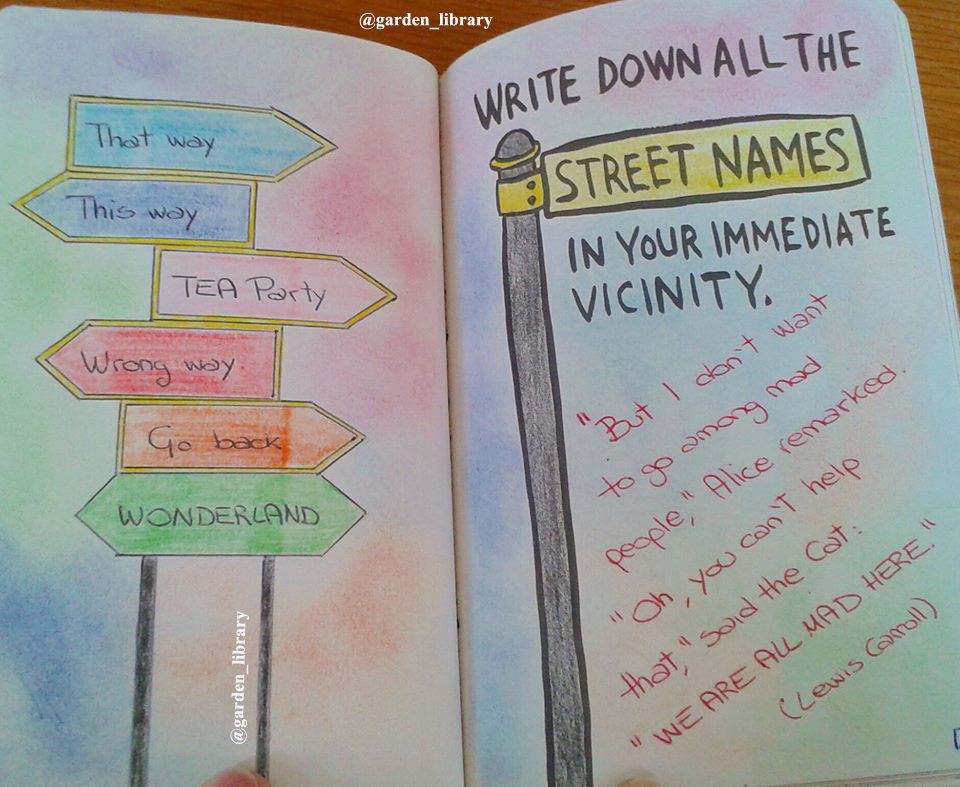 @garden_library
That way
This way
TEA Party
Wrong way
Go back
WONDERLAND
@garden_library
WRITE DOWN ALL THE
STREET NAMES
IN YOUR IMMEDIATE
VICINITY.
"But I don't want
to go among mad
people," Alice remarked.
"Oh, you can't help
that," said the Cat:
"WE ARE ALL MAD HERE."
(Lewis Carroll)